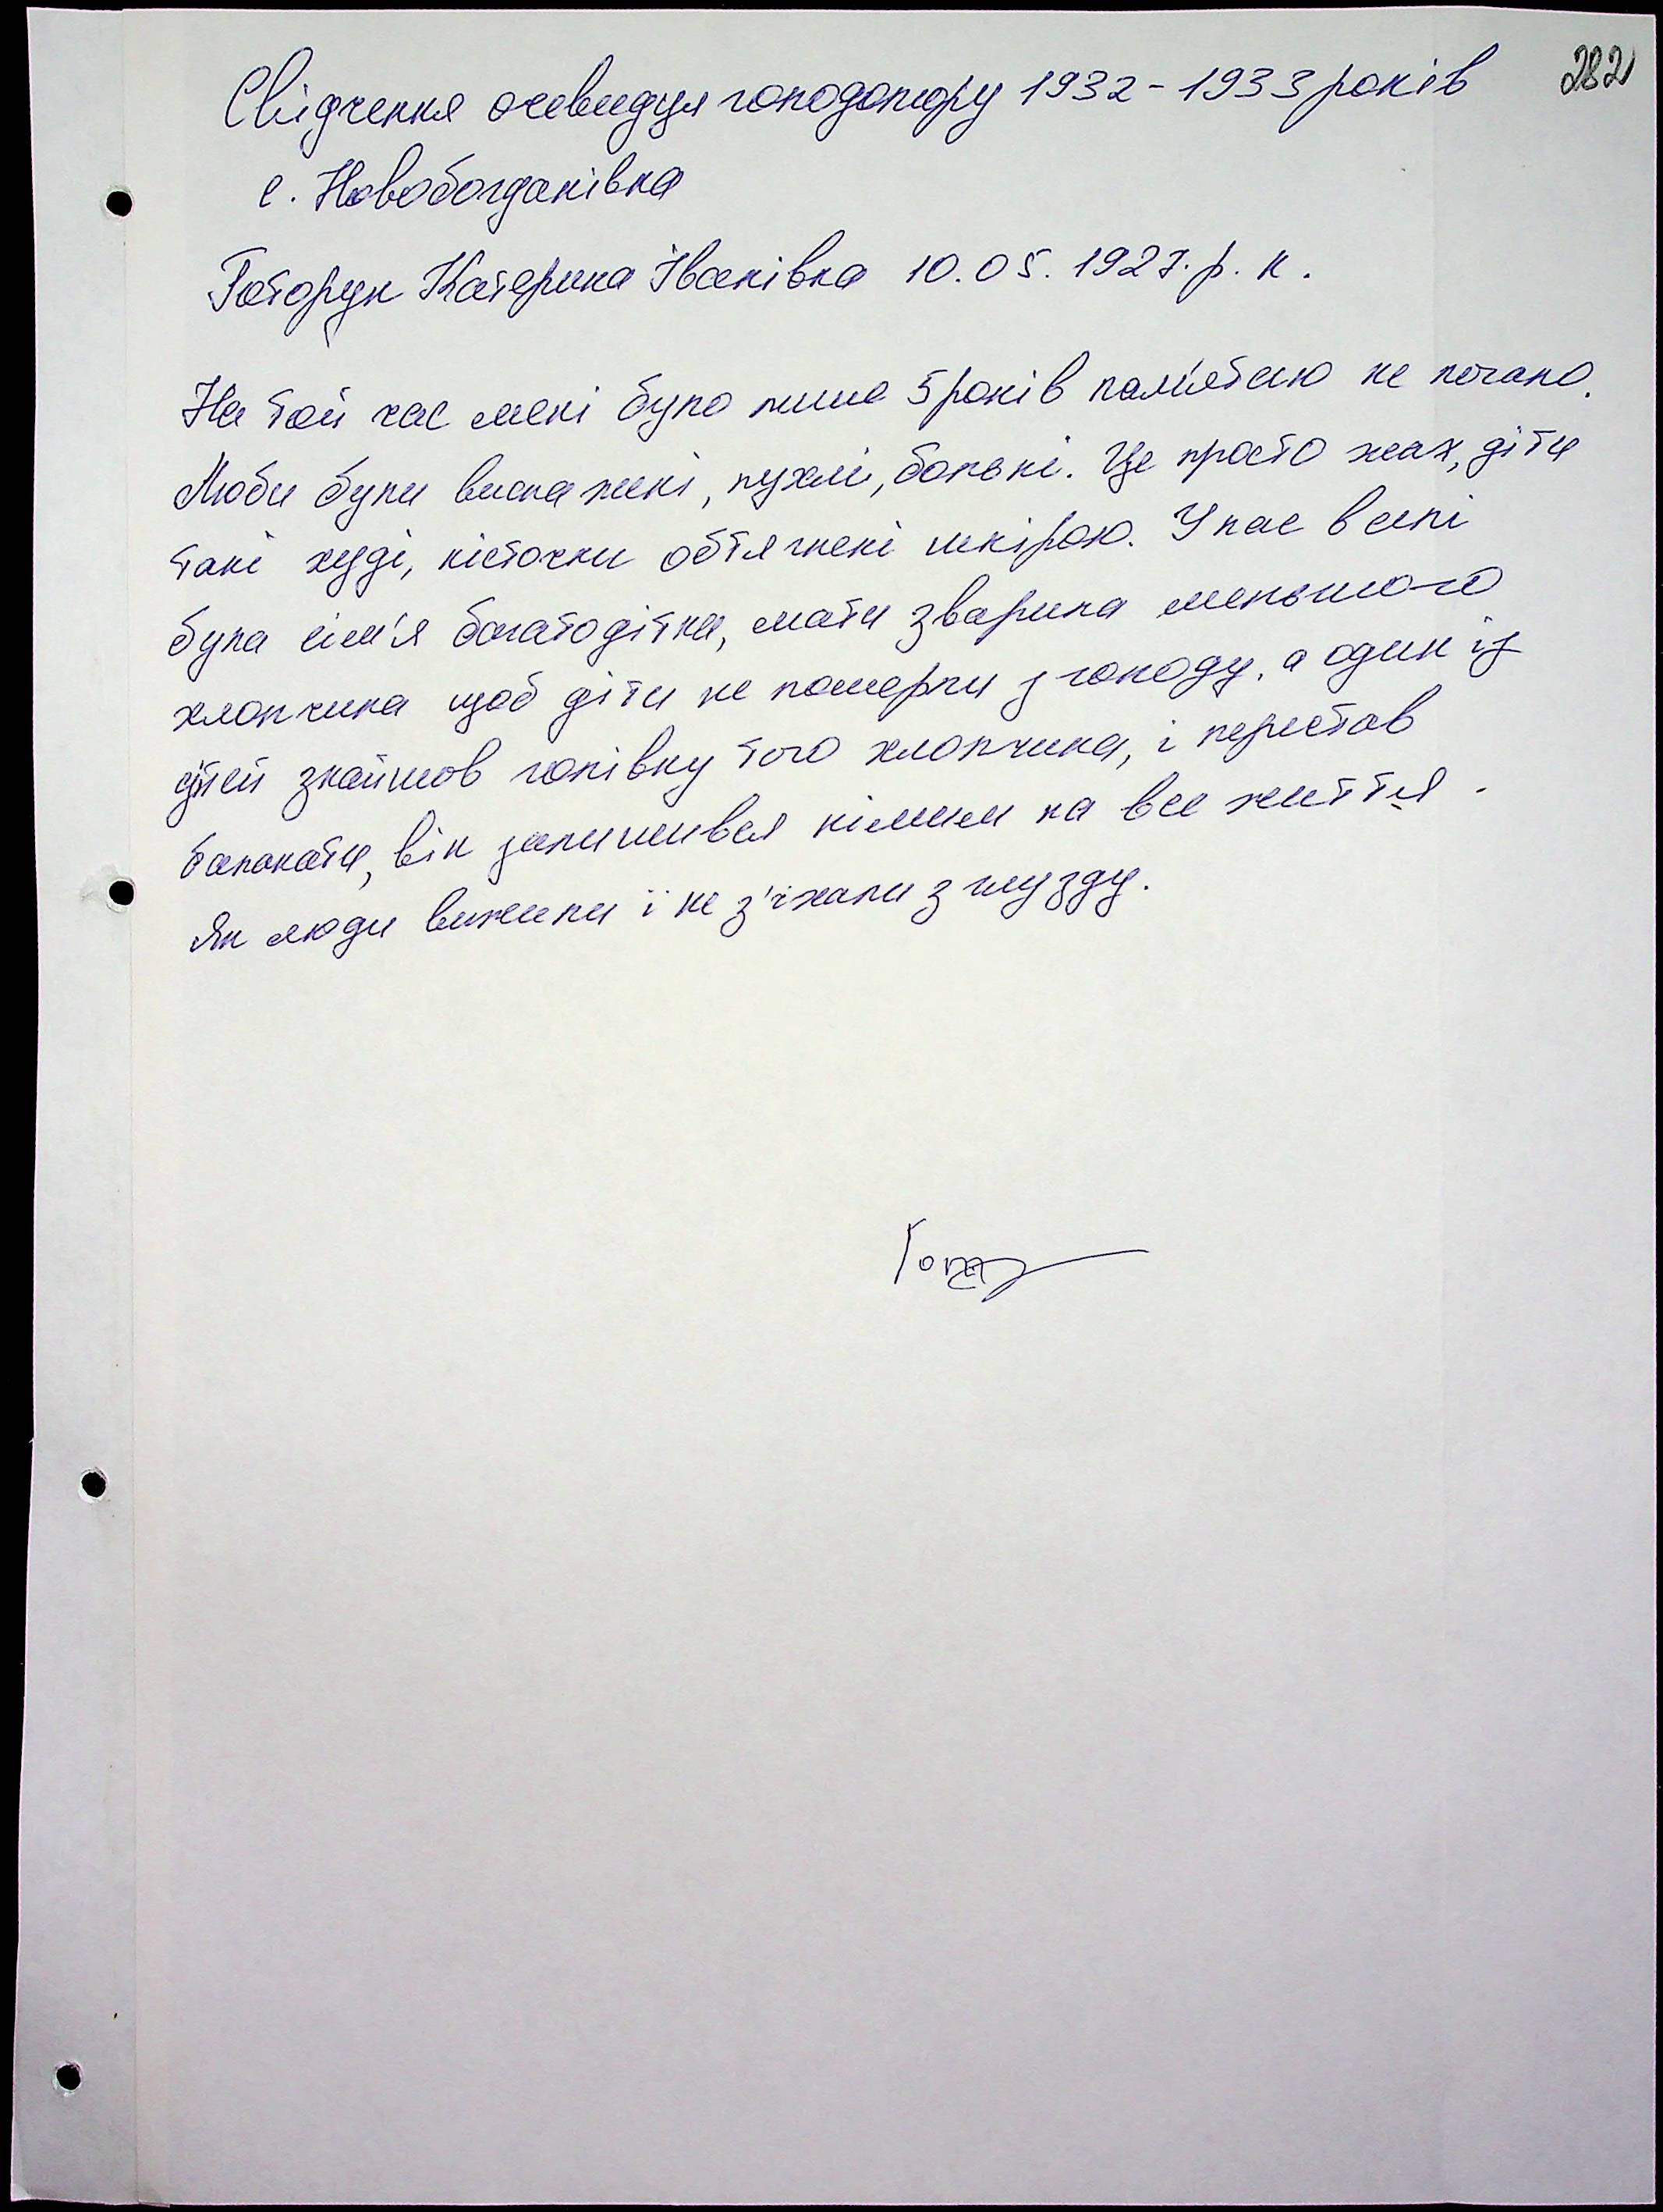 282
Свідчення очевидця голодомору 1932-1933 років
с. Новобогданівка
Катерина Іванівна 10.05.1927. р. н.
На той час мені було лише 5 років пам'ятаю не погано.
Люби були виснажені, пухлі, больні. Це просто жах, діти
такі худі, кісточки обтягнені шкірою. У нас в селі
була сім'я багатодітна, мати зварила меньшого
хлопчика щоб діти не померли з голоду, а один із
дітей знайшов голівку того хлопчика, і перестав
балакати, він залишився німим на все життя.
Як люди вижили і не з'їхали з глузду.